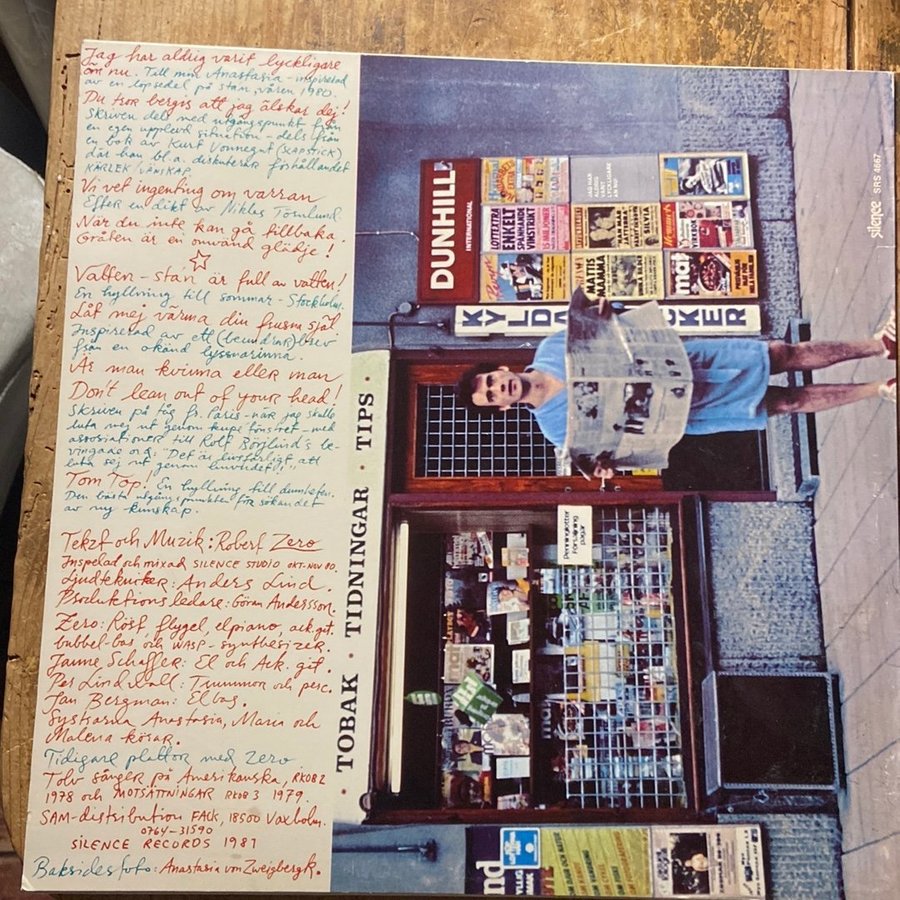 Jag har aldrig varit lyckligare
än nu. Till min Anastasia - inspirerad
av en löpsedel på stan, våren 1980.
Du tror bergis att jag älskar dej!
Skriven dels med utgångspunkt från
en egen upplevd situation - dels från
en bok av Kurt Vonnegut (SLAPSTICK)
där han bl.a. diskuterar förhållandet
KÄRLEK VÄNSKAP.
Vi vet ingenting om varran
Efter en dikt av Niklas Törnlund.
När du inte kan gå tillbaka.
Gråten är en omvänd glädje!
Vatten - stan är full av vatten!
En hyllning till sommar - Stockholm.
Låt mej värma din frusna själ!
Inspirerad av ett (beundrar)brev
från en okänd lyssnarinna.
Är man kvinna eller man
Don't lean out of your head!
Skriven på tåg fr. Paris - när jag skulle
luta mej ut genom kupéfönstret - med
associationer till Rolf Börjlind's be-
vingade ord: "Det är livsfarligt att
luta sej ut genom huvudet!"
Tom Top! En hyllning till dumheten.
Den bästa utgångspunkten för sökandet
av ny kunskap.
Text och Musik: Robert Zero
Inspelad och mixad SILENCE STUDIO OKT-NOV 80.
Ljudtekniker: Anders Lind.
Produktionsledare: Göran Andersson.
Zero: Röst, flygel, elpiano, ack.git.
bubbel-bas och WASP - synthesizer.
Janne Schaffer: El och Ack. git.
Per Lindvall: Trummor och perc.
Jan Bergman: Elbas.
Systrarna Anastasia, Maria och
Malena körar.
Tidigare plattor med Zero
Tolv sånger på Amerikanska, RKOB 2
1978 och MOTSÄTTNINGAR RKOB 3 1979.
SAM-distribution FACK, 18500 Vaxholm.
0764-31590
SILENCE RECORDS 1981
Baksidesfoto: Anastasia von Zweigbergk.
silence SRS 4667
DUNHILL
INTERNATIONAL
LOTTEXTRA
ENKELT
SPÄNNANDE
VINSTRIKT
JAG HAR
ALDRIG
VARIT
LYCKLIGARE
ÄN NU
MATTIS
MAMMA
mat
KYLDA
CKER
• TOBAK • TIDNINGAR • TIPS •
Penninglotter
Försäljning
pågår